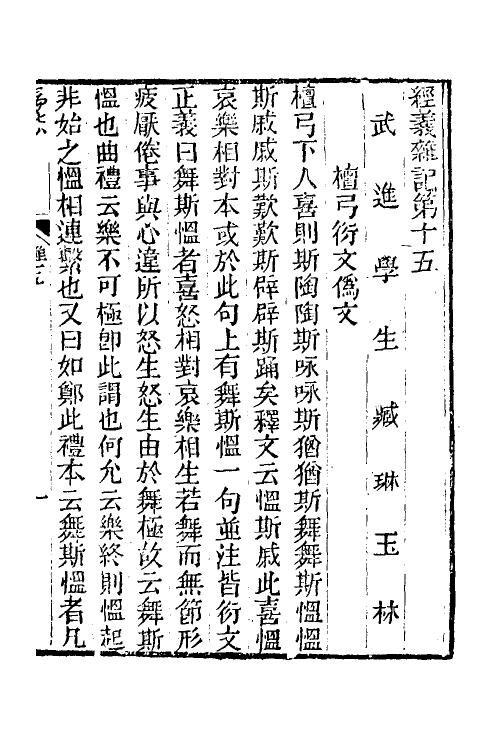 經義雜記第十五
武進學生臧琳玉林
檀弓衍文僞文
檀弓下人喜則斯陶陶斯咏咏斯猶猶斯舞舞斯慍慍
斯戚戚斯歎歎斯辟辟斯踊矣釋文云慍斯戚此喜慍
哀樂相對本或於此句上有舞斯慍一句並注皆衍文
正義曰舞斯慍者喜怒相對哀樂相生若舞而無節形
疲厭倦事與心違所以怒生怒生由於舞極故云舞斯
慍也曲禮云樂不可極卽此謂也何允云樂終則慍起
非始之慍相連繫也又曰如鄭此禮本云舞斯慍者凡
一